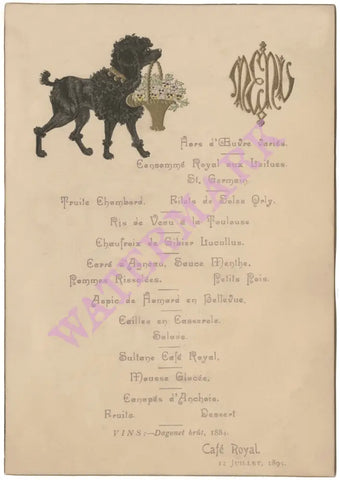 MENU
Hors d'Œuvre variés.
Consommé Royal aux Laitues.
St. Germain.
Truite Chambord. Filets de Soles Orly.
Ris de Veau à la Toulouse
Chaufroix de Gibier Lucullus.
Carré d'Agneau, Sauce Menthe.
Pommes Rissolées. Petits Pois.
Aspic de Homard en Bellevue.
Cailles en Casserole.
Salade.
Sultane Café Royal.
Mousse Glacée.
Canapés d'Anchois.
Fruits Dessert
VINS:—Dagonet brût, 1884.
Café Royal.
12 JUILLET, 1894.
WATERMARK